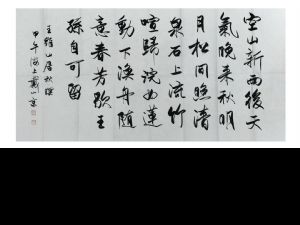 空山新雨後天
氣晚来秋明
月松间照清
泉石上流竹
喧歸浣女蓮
動下漁舟随
意春芳歇王
孫自可留
王維山居秋暝
甲午海上